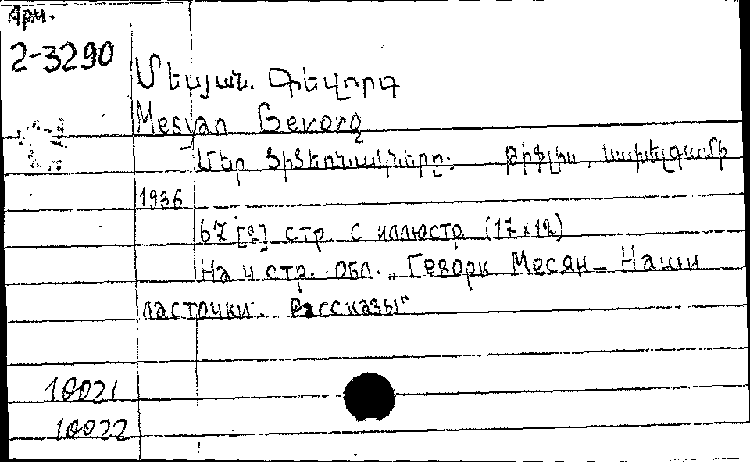 Арм.
2-3290
Մեսյան. Գեվորգ
Mesyan Gevorg
Մեր ծիծեռնակները: Թիֆլիս,
1936
67 [2] стр. с иллюстр (17x12)
На 4 стр. обл. „Геворк Месян_Наши
ласточки. Рассказы"
10021
10022